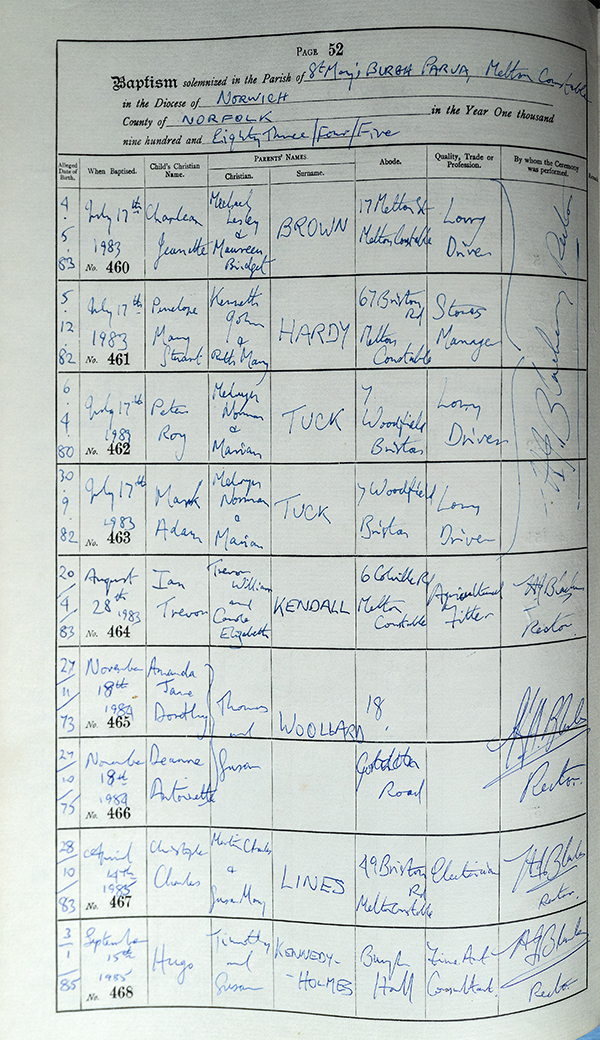 PAGE 52
Baptism solemnized in the Parish of St Mary's BURGH PARVA, Melton Constable
in the Diocese of NORWICH
County of NORFOLK in the Year One thousand
nine hundred and Eighty Three/Four/Five
Alleged Date of Birth. When Baptised. Child's Christian Name. PARENTS' NAMES Christian. Surname. Abode. Quality, Trade or Profession. By whom the Ceremony was performed.
4 5 83 July 17th 1983 No. 460 Jeanette Lesley & Maureen Bridget BROWN 17 Melton St Melton Constable Lorry Driver
5 12 82 July 17th 1983 No. 461 Penelope Mary Stuart Kenneth John & Ruth Mary HARDY 67 Briston Rd Melton Constable Stores Manager
6 4 80 July 17th 1983 No. 462 Peter Roy Melvyn Norman & Marian TUCK 7 Woodfield Briston Lorry Driver
30 9 82 July 17th 1983 No. 463 Mark Adam Melvyn Norman & Marian TUCK 7 Woodfield Briston Lorry Driver
Rector
20 4 83 August 28th 1983 No. 464 Ian Trevor Trevor William and Carole Elizabeth KENDALL 6 Colville Rd Melton Constable Agricultural Fitter Rector
27 11 73 November 18th 1984 No. 465 Amanda Jane Dorothy Thomas and WOOLLARD 18
27 10 75 November 18th 1984 No. 466 Deanne Antoinette Susan Road Rector.
28 10 83 April 4th 1985 No. 467 Christopher Charles Martin Charles & Susan Mary LINES 49 Briston Rd Melton Constable Electrician Rector.
3 1 85 September 15th 1985 No. 468 Hugo Timothy and Susan KENNEDY-HOLMES Burgh Hall Fine Art Consultant. Rector.